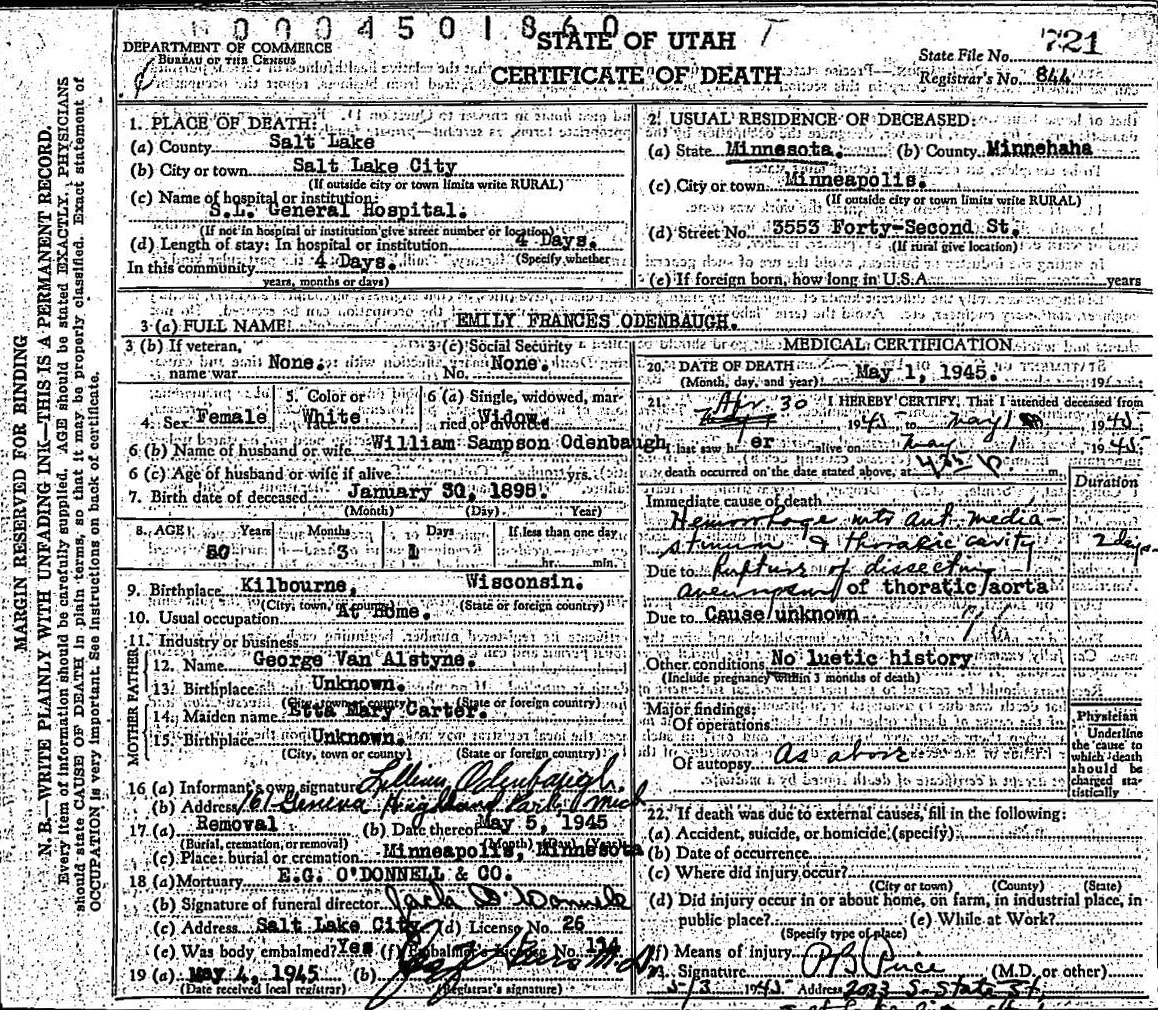 0004501860
STATE OF UTAH
DEPARTMENT OF COMMERCE
BUREAU OF THE CENSUS
CERTIFICATE OF DEATH
State File No. 721
Registrar's No. 844
MARGIN RESERVED FOR BINDING
N. B.—WRITE PLAINLY WITH UNFADING INK—THIS IS A PERMANENT RECORD.
Every item of information should be carefully supplied. AGE should be stated EXACTLY. PHYSICIANS
should state CAUSE OF DEATH in plain terms, so that it may be properly classified. Exact statement of
OCCUPATION is very important. See instructions on back of certificate.
1. PLACE OF DEATH:
(a) County Salt Lake
(b) City or town Salt Lake City
(If outside city or town limits write RURAL)
(c) Name of hospital or institution:
S.L. General Hospital.
(If not in hospital or institution give street number or location)
(d) Length of stay: In hospital or institution 4 Days.
(Specify whether
In this community 4 Days.
years, months or days)
2. USUAL RESIDENCE OF DECEASED:
(a) State Minnesota. (b) County Minnehaha
(c) City or town Minneapolis.
(If outside city or town limits write RURAL)
(d) Street No. 3553 Forty-Second St.
(If rural give location)
(e) If foreign born, how long in U.S.A. years
3 (a) FULL NAME EMILY FRANCES ODENBAUGH.
3 (b) If veteran, name war None.
3 (c) Social Security No. None.
4. Sex Female
5. Color or White
6 (a) Single, widowed, married or divorced Widow.
6 (b) Name of husband or wife William Sampson Odenbaugh
6 (c) Age of husband or wife if alive yrs.
7. Birth date of deceased January 30, 1895.
(Month) (Day) Year)
8. AGE Years Months Days If less than one day
50 3 1 hr. min.
9. Birthplace Kilbourne, Wisconsin.
(City, town, or county) (State or foreign country)
10. Usual occupation At Home.
11. Industry or business
FATHER
12. Name George Van Alstyne.
13. Birthplace Unknown.
(City, town or county) (State or foreign country)
MOTHER
14. Maiden name Etta Mary Carter.
15. Birthplace Unknown.
(City, town or county) (State or foreign country)
16 (a) Informant's own signature Lillian Odenbaugh.
(b) Address 161 Geneva Highland Park, Mich
17 (a) Removal (b) Date thereof May 5, 1945
(Burial, cremation, or removal) (Month) (Day) (Year)
(c) Place: burial or cremation Minneapolis, Minnesota
18 (a) Mortuary E.G. O'DONNELL & CO.
(b) Signature of funeral director Jack O'Donnell
(c) Address Salt Lake City (d) License No. 26
(e) Was body embalmed? Yes (f) Embalmer's License No. 134
19 (a) May 4, 1945 (b)
(Date received local registrar) (Registrar's signature)
MEDICAL CERTIFICATION
20. DATE OF DEATH May 1, 1945.
(Month, day, and year) 19
21. I HEREBY CERTIFY, That I attended deceased from
Apr. 30 1945 to May 1 1945
I last saw her alive on May 1 1945
death occurred on the date stated above, at m.
Duration
Immediate cause of death
Hemorrhage into ant. media-
stinum & thoracic cavity 2 days
Due to Rupture of dissecting
aneurysm of thoratic aorta
Due to Cause unknown
Other conditions No luetic history
(Include pregnancy within 3 months of death)
Major findings:
Of operations
Of autopsy As above
Physician
Underline the cause to which death should be charged statistically
22. If death was due to external causes, fill in the following:
(a) Accident, suicide, or homicide (specify)
(b) Date of occurrence
(c) Where did injury occur?
(City or town) (County) (State)
(d) Did injury occur in or about home, on farm, in industrial place, in
public place? (e) While at Work?
(Specify type of place)
(f) Means of injury
23. Signature P B Price (M.D. or other)
5/3 1945 Address 2033 S. State St.